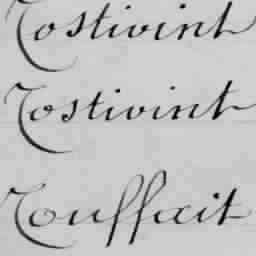 Tostivint
Tostivint
Touffait